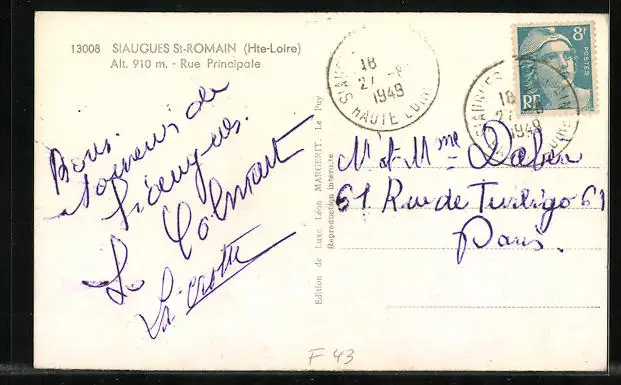 13008 SIAUGUES St-ROMAIN (Hte-Loire)
Alt. 910 m. - Rue Principale
Bons
souvenirs de
Siaugues.
Edition de Luxe Léon MARGERIT. Le Puy
Reproduction interdite
SIAUGUES
18
27
1949
HAUTE LOIRE
8F
POSTES
RF
SIAUGUES
18
27
1949
M. et Mme
61 Rue de Turbigo 61
Paris.
F 43